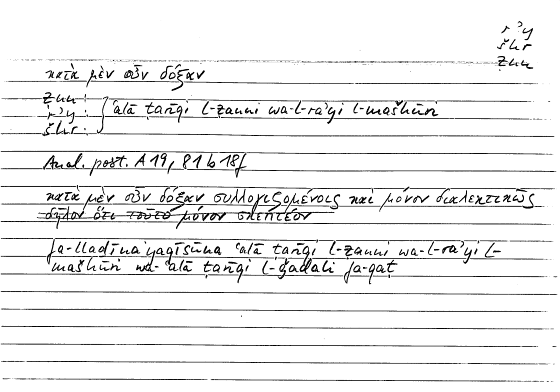 rʾy
šhr
ẓnn
κατὰ μὲν οὖν δόξαν
ẓnn :
rʾy : ʿalā ṭarīqi l-ẓanni wa-l-raʾyi l-mašhūri
šhr :
Anal. post. A 19, 81 b 18f
κατὰ μὲν οὖν δόξαν συλλογιζομένοις καὶ μόνον διαλεκτικῶς
δῆλον ὅτι τοῦτο μόνον σκεπτέον
fa-lladīna yaqīsūna ʿalā ṭarīqi l-ẓanni wa-l-raʾyi l-
mašhūri wa-ʿalā ṭarīqi l-ǧadali fa-qaṭ